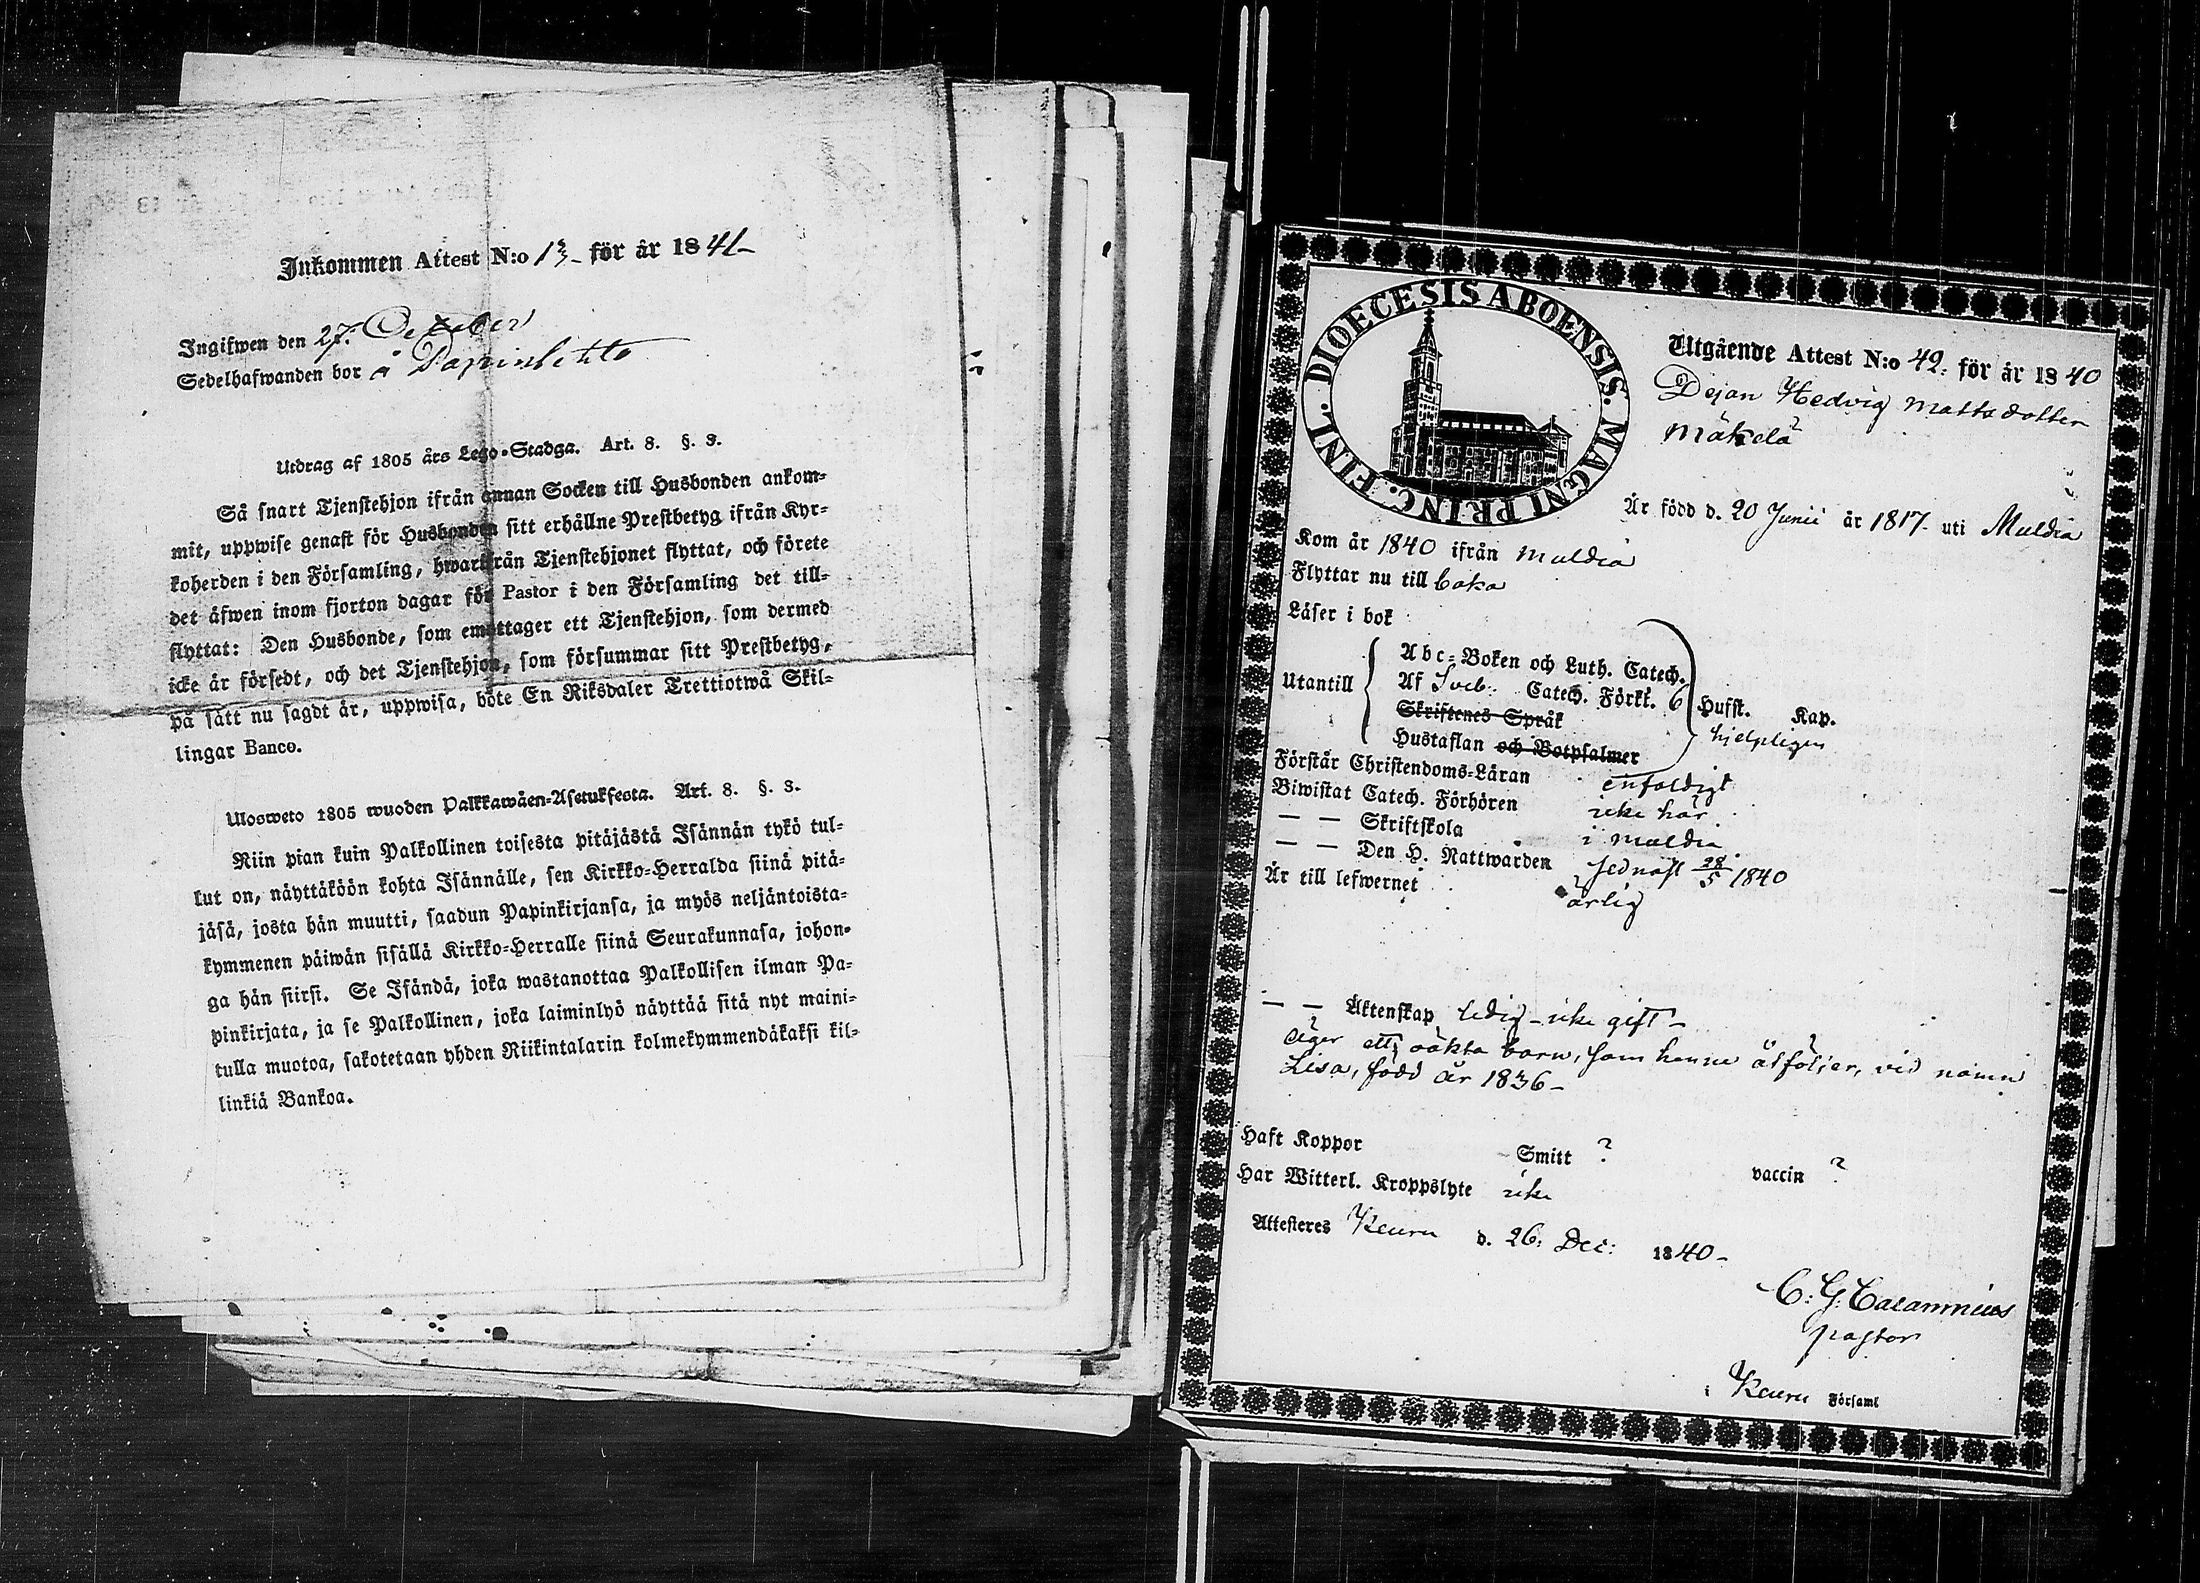 Inkommen Attest N:o 13 för år 1841
Ingifwen den 27. October
Sedelhafwanden bor å Papinlehto
Utdrag af 1805 års Lego-Stadga. Art. 8. §. 3.
Så snart Tjenstehjon ifrån annan Socken till Husbonden ankom-
mit, uppwise genast för Husbonden sitt erhållne Prestbetyg ifrån Kyr-
koherden i den Församling, hwarifrån Tjenstehjonet flyttat, och förete
det äfwen inom fjorton dagar för Pastor i den Församling det till-
flyttat: Den Husbonde, som emottager ett Tjenstehjon, som dermed
icke är försedt, och det Tjenstehjon, som försummar sitt Prestbetyg,
på sätt nu sagdt är, uppwisa, böte En Riksdaler Trettiotwå Skil-
lingar Banco.
Ulosweto 1805 wuoden Palkkawäen-Asetuksesta. Art. 8. §. 3.
Niin pian kuin Palkollinen toisesta pitäjästä Isännän tykö tul-
lut on, näyttäköön kohta Isännälle, sen Kirkko-Herralda siinä pitä-
jäsä, josta hän muutti, saadun Papinkirjansa, ja myös neljäntoista-
kymmenen päiwän sisällä Kirkko-Herralle siinä Seurakunnasa, johon-
ga hän siirsi. Se Isändä, joka wastanottaa Palkollisen ilman Pa-
pinkirjata, ja se Palkollinen, joka laiminlyö näyttää sitä nyt maini-
tulla muotoa, sakotetaan yhden Riikintalarin kolmekymmendäkaksi kil-
linkiä Bankoa.
DIOECESIS ABOENSIS. MAGNI PRINC. FINL.
Utgående Attest N:o 42. för år 1840
Dejan Hedvig Mattsdotter
Mäkelä
Är född d. 20 Junii år 1817 uti Muldia
Kom år 1840 ifrån Muldia
Flyttar nu till baka
Läser i bok
Utantill
Abc-Boken och Luth. Catech.
Af Sveb. Catech. Förkl. 6 Hufst. Kap.
Skriftenes Språk
Hustaflan och Botpsalmer hjelpligen
Förstår Christendoms-Läran enfaldigt
Biwistat Catech. Förhören icke här
— — Skriftskola i Muldia
— — Den H. Nattwarden sednast 28/5 1840
Är till lefwernet ärlig
— — Äktenskap ledig - icke gift -
äger ett oäkta barn, som henne åtföljer, vid namn
Lisa, född år 1836 -
Haft Koppor Smitt ? vaccin ?
Har Witterl. Kroppslyte icke
Attesteres Keuru d. 26. Dec: 1840 -
C. G. Calamnius
pastor
i Keuru Församl